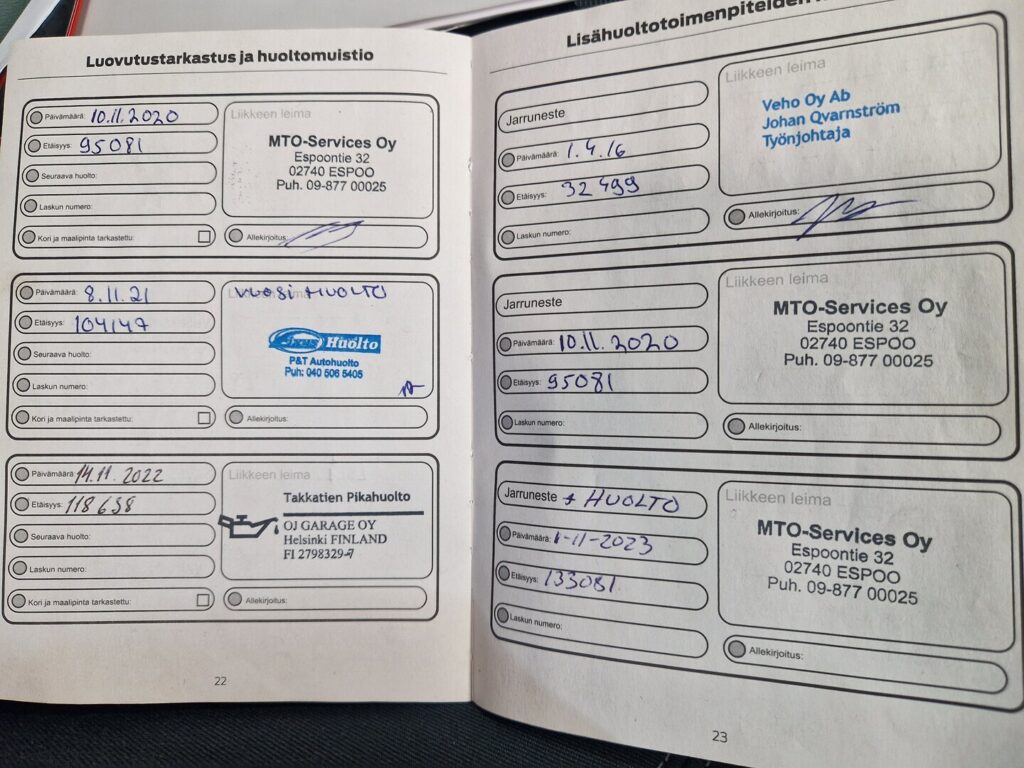 Luovutustarkastus ja huoltomuistio
Päivämäärä: 10.11.2020
Etäisyys: 95081
Seuraava huolto:
Laskun numero:
Kori ja maalipinta tarkastettu:
Liikkeen leima
MTO-Services Oy
Espoontie 32
02740 ESPOO
Puh. 09-877 00025
Allekirjoitus:
Päivämäärä: 8.11.21
Etäisyys: 104147
Seuraava huolto:
Laskun numero:
Kori ja maalipinta tarkastettu:
VUOSI HUOLTO
Huolto
P&T Autohuolto
Puh: 040 506 5405
Allekirjoitus:
Päivämäärä: 14.11.2022
Etäisyys: 118638
Seuraava huolto:
Laskun numero:
Kori ja maalipinta tarkastettu:
Liikkeen leima
Takkatien Pikahuolto
OJ GARAGE OY
Helsinki FINLAND
FI 2798329-7
Allekirjoitus:
22
Lisähuoltotoimenpiteiden
Jarruneste
Päivämäärä: 1.4.16
Etäisyys: 32499
Laskun numero:
Liikkeen leima
Veho Oy Ab
Johan Qvarnström
Työnjohtaja
Allekirjoitus:
Jarruneste
Päivämäärä: 10.11.2020
Etäisyys: 95081
Laskun numero:
Liikkeen leima
MTO-Services Oy
Espoontie 32
02740 ESPOO
Puh. 09-877 00025
Allekirjoitus:
Jarruneste + HUOLTO
Päivämäärä: 1-11-2023
Etäisyys: 133081
Laskun numero:
Liikkeen leima
MTO-Services Oy
Espoontie 32
02740 ESPOO
Puh. 09-877 00025
Allekirjoitus:
23